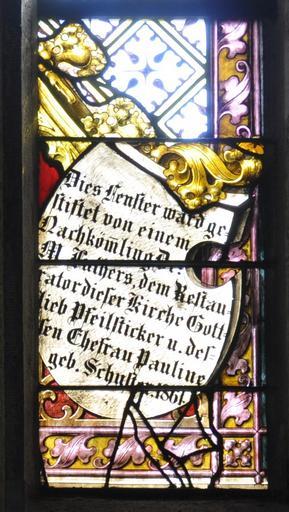 Dies Fenster ward ge-
stiftet von einem
Nachkömling D.
M. Luthers, dem Restau-
rator dieser Kirche Gott
lieb Pfeilsticker u. des-
sen Ehefrau Pauline
geb. Schuster. 1861.